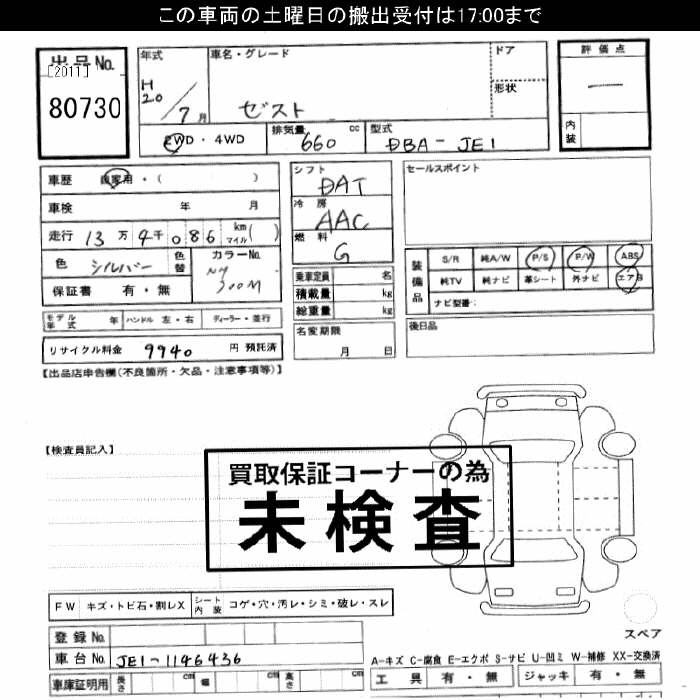 この車両の土曜日の搬出受付は17:00まで
出品No.
[2011]
80730
年式
H20/7月
車名・グレード
ゼスト
ドア
形状
評価点
内装
2WD・4WD
排気量
660 cc
型式
DBA-JE1
車歴 自家用・( )
車検 年 月
走行 13万4千086 km(マイル)
色 シルバー 色替
カラーNo.
NH700M
保証書 有・無
シフト
DAT
冷房
AAC
燃料
G
セールスポイント
装備品
S/R 純A/W P/S P/W ABS
純TV 純ナビ 革シート 外ナビ エアB
ナビ型番:
乗車定員 名
積載量 kg
総重量 kg
モデル年式 年 ハンドル 左・右 ディーラー・並行
リサイクル料金 9940 円 預託済
名変期限
月 日
後日品
【出品店申告欄(不良箇所・欠品・注意事項等)】
【検査員記入】
買取保証コーナーの為
未検査
FW キズ・トビ石・割レX シート内装 コゲ・穴・汚レ・シミ・破レ・スレ
登録No.
車台No. JE1-1146436
車庫証明用 長さ cm 幅 cm 高さ cm
スペア
A-キズ C-腐食 E-エクボ S-サビ U-凹ミ W-補修 XX-交換済
工具 有・無 ジャッキ 有・無